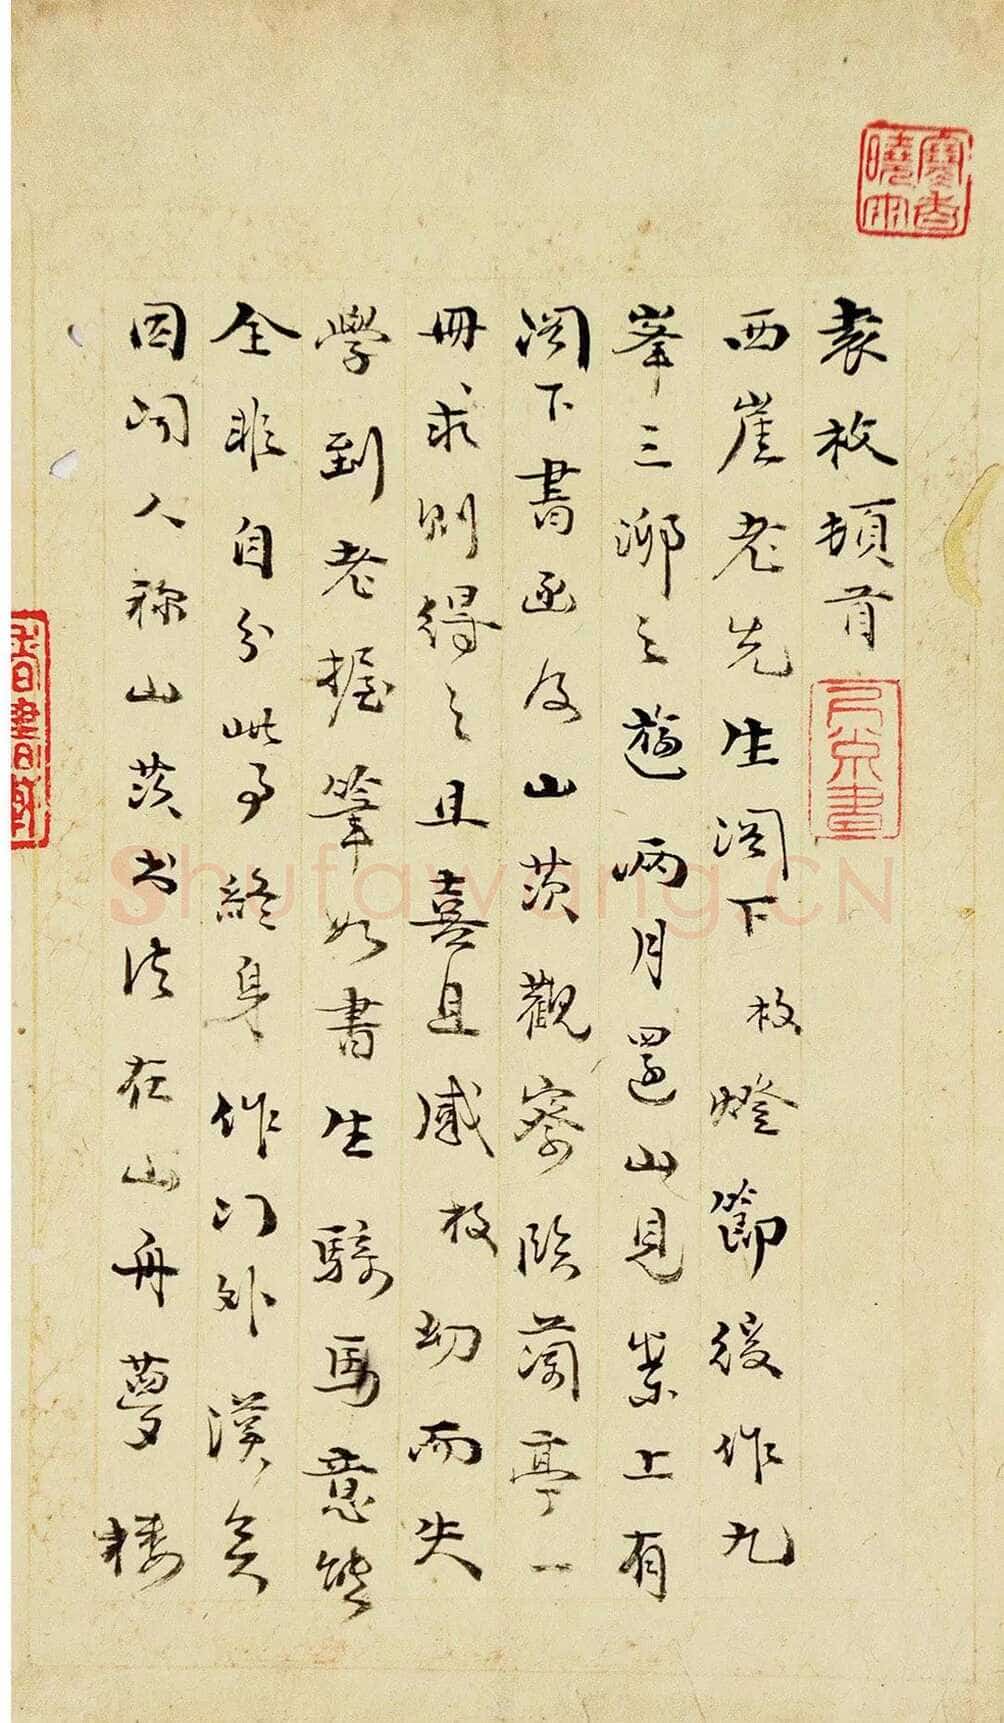 袁枚頓首
西崖老先生閣下枚燈節後作九
峯三泖之遊兩月還山見案上有
閣下書函及山茨觀察臨蘭亭一
冊求則得之且喜且感枚幼而失
學到老握筆如書生騎馬意態
全非自分此事終身作门外漢矣
因閱人称山茨书法在山舟夢樓
Shufawang.CN